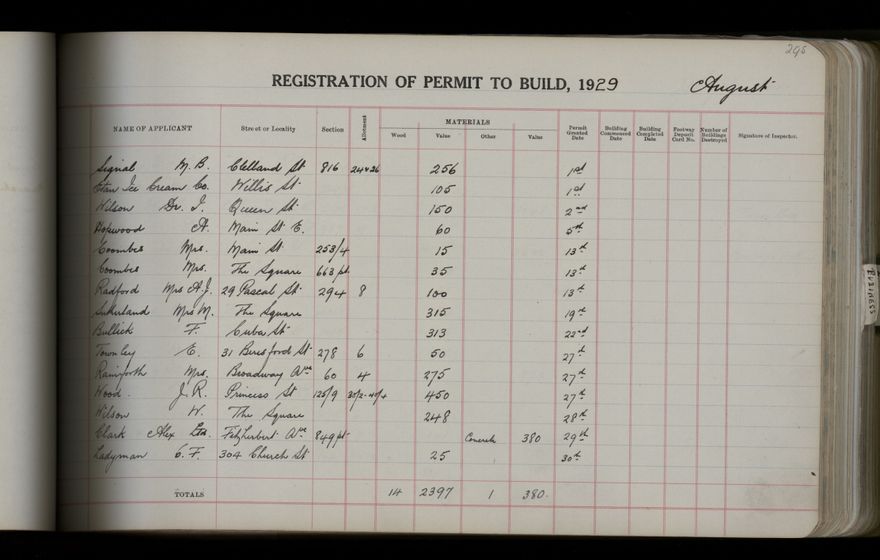 295
REGISTRATION OF PERMIT TO BUILD, 1929 August
NAME OF APPLICANT Street or Locality Section Allotment MATERIALS Wood Value Other Value Permit Granted Date Building Commenced Date Building Completed Date Footway Deposit Card No. Number of Buildings Destroyed Signature of Inspector.
Signal M. B. Clelland St 816 24 & 26 256 1st
Etan Ice Cream Co. Willis St 105 1st
Wilson Dr. J. Queen St 150 2nd
Hopwood A. Main St E. 60 5th
Coombes Mrs. Main St 253/4 15 13th
Coombes Mrs. The Square 663 pt. 35 13th
Radford Mrs A. J. 29 Pascal St 294 8 100 13th
Sutherland Mrs M. The Square 315 19th
Bullick F. Cuba St 313 22nd
Townley E. 31 Beresford St 278 6 50 27th
Rainforth Mrs. Broadway Ave 60 4 275 27th
Wood. J. R. Princess St 125/9 450 27th
Wilson H. The Square 248 28th
Clark Alex Ltd. Fitzherbert Ave 849 pt Concrete 380 29th
Ladyman C. F. 304 Church St 25 30th
TOTALS 14 2397 1 380.
BUSINESS